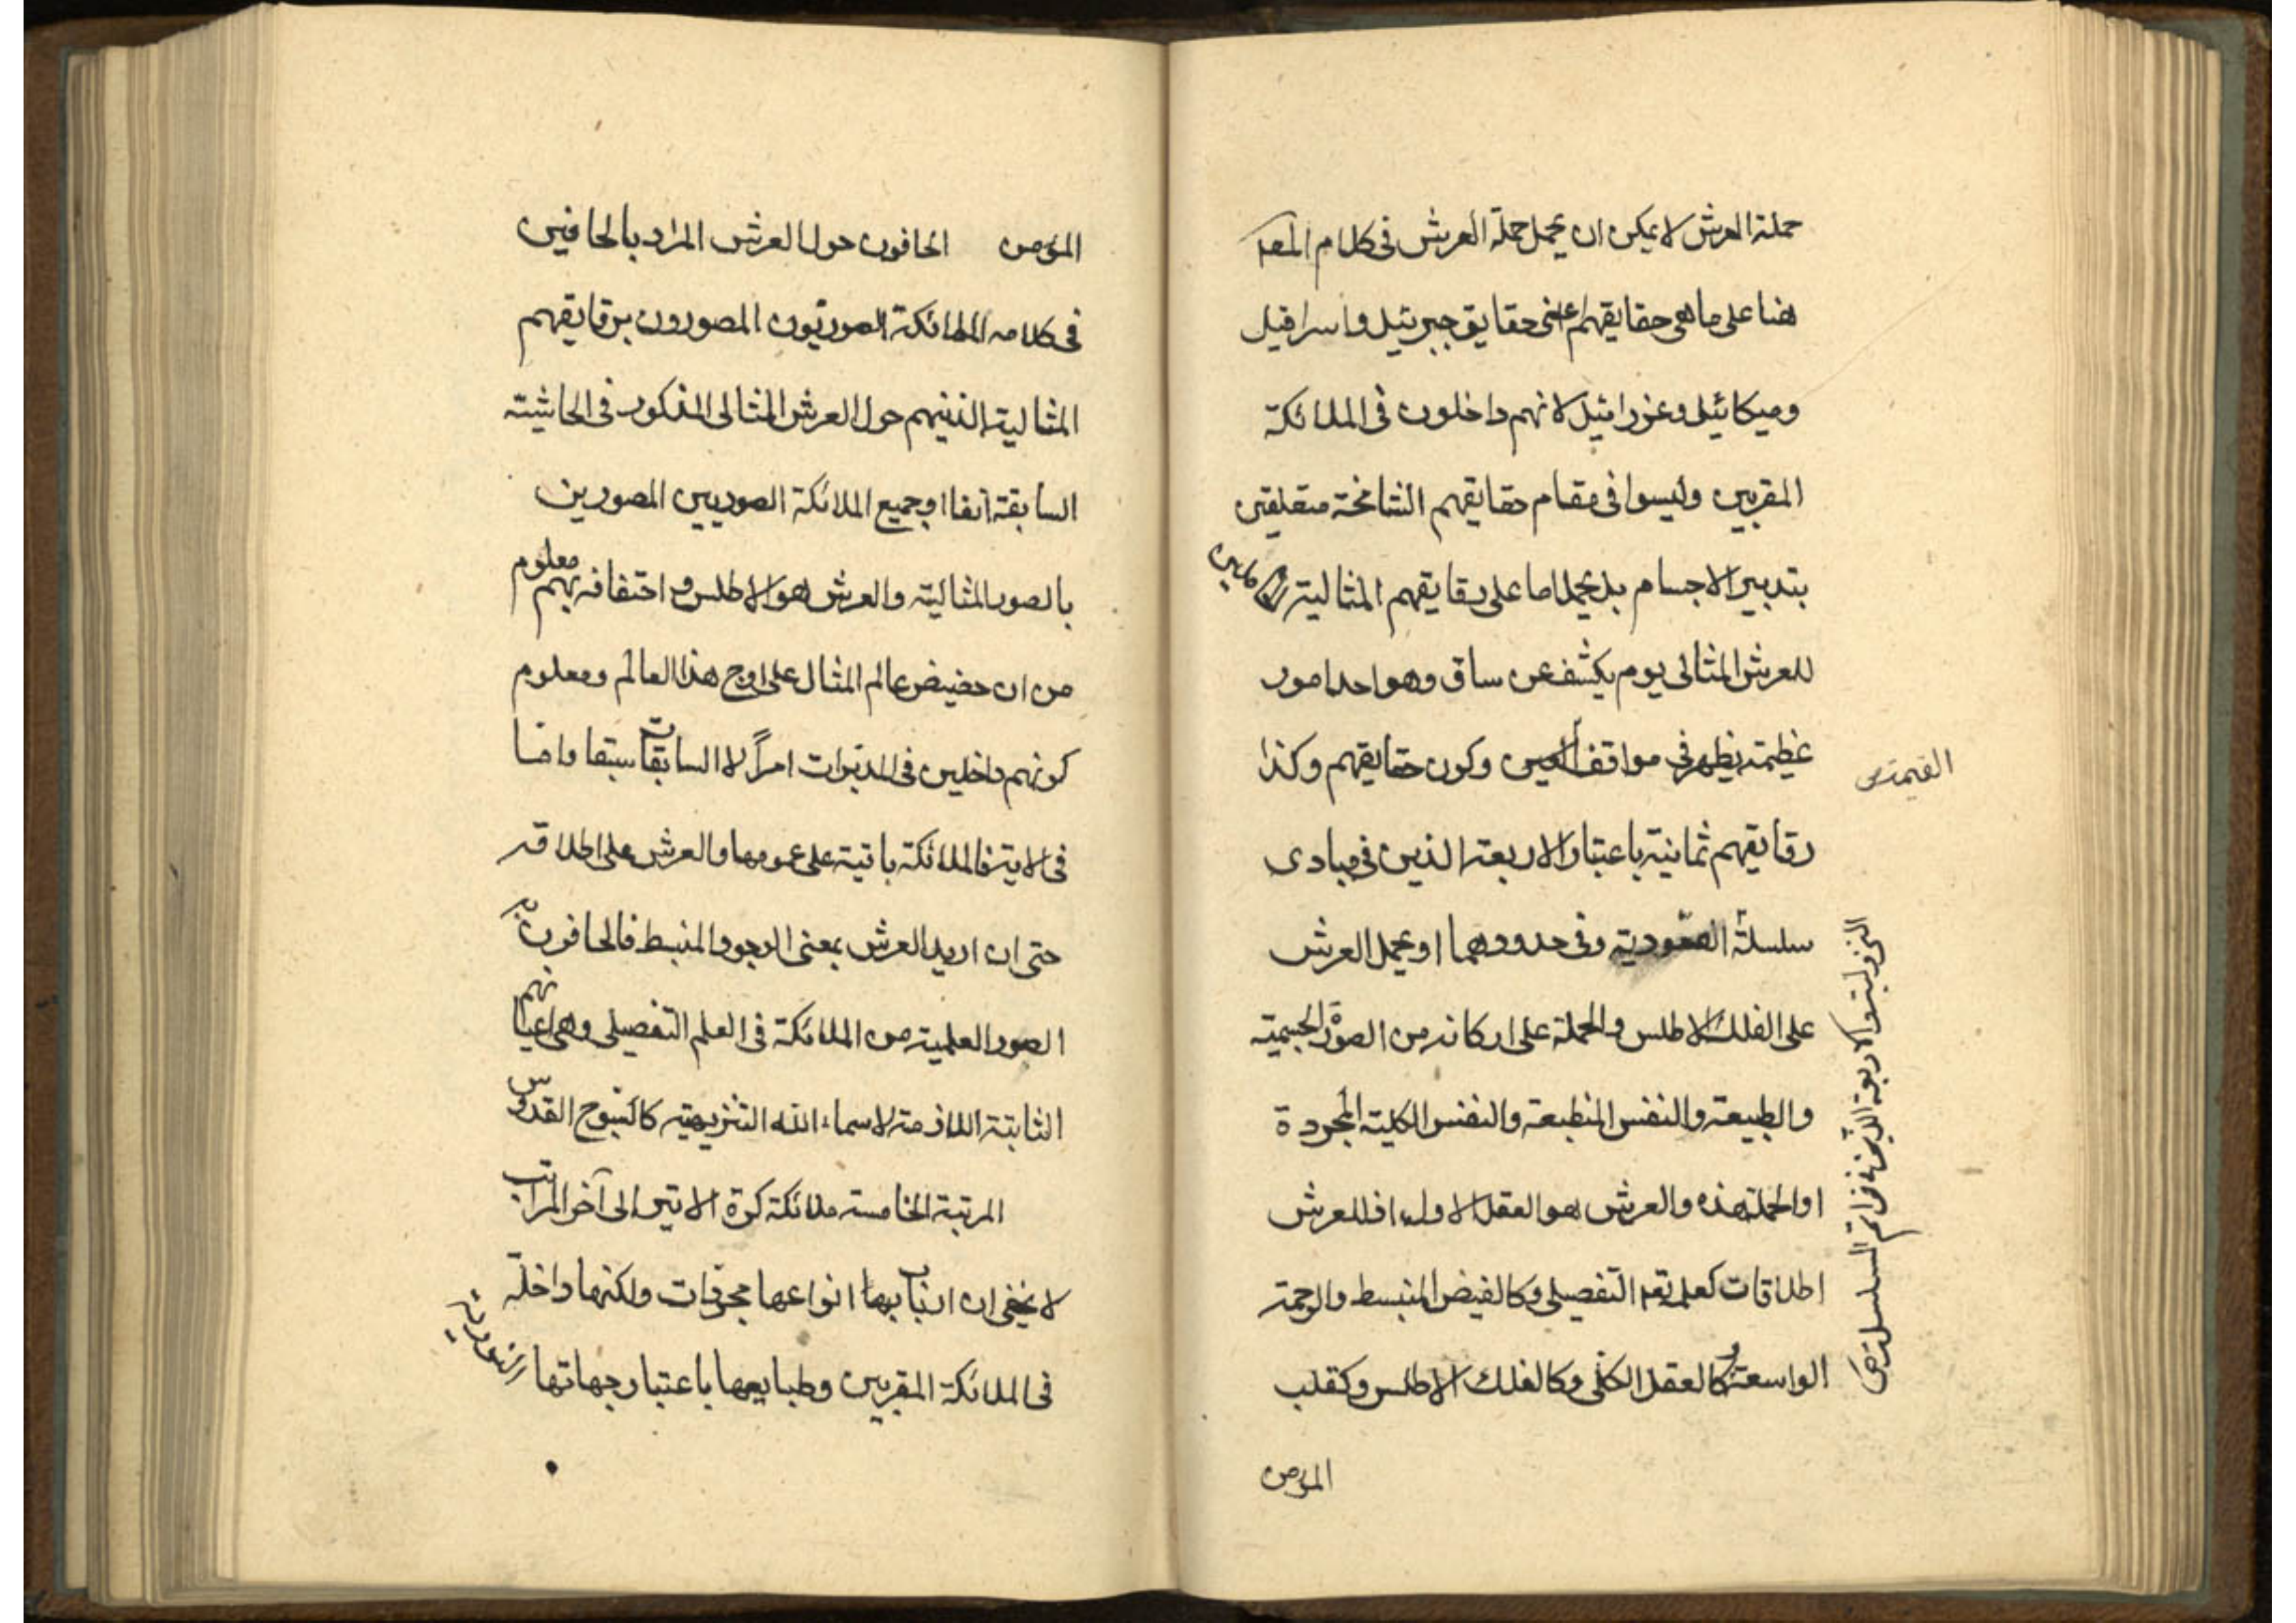 حملة العرش لا يمكن ان يحمل حملة العرش فى كلام المصـ
هنا على ما هى حقايقهم اعنى حقايق جبرئيل واسرافيل
وميكائيل وعزرائيل لانهم داخلون فى الملائكة
المقربين وليسوا فى مقام حقايقهم الشامخة متعلقين
بتدبير الاجسام بل يحمل اما على رقايقهم المثالية
للعرش المثالى يوم يكشف عن ساق وهو احد امور
عظيمة يظهر فى مواقف وكون حقايقهم وكذا
القيمة ص
رقايقهم ثمانية باعتبار الاربعة الذين فى مبادى
سلسلة الصعودية وفى حدودهما او يحمل العرش
على الفلك الاطلس والحملة على اركانه من الصورة الجسمية
والطبيعة والنفس المنطبعة والنفس الكلية المجردة
او الحملة هذه والعرش هو العقل الاول اذ للعرش
اطلاقات كعلمه تعم التفصيلى وكالفيض المنبسط والرحمة
الواسعة وكالعقل الكلى وكالفلك الاطلس وكقلب
الاربعة الذين فى خواتم السلسلة ص
المؤمن
المؤمن الحافون حول العرش المراد بالحافين
فى كلامه الملائكة الصوريون المصورون برقايقهم
المثالية الذينهم حول العرش المثالى المذكور فى الحاشية
السابقة آنفا او جميع الملائكة الصوريين المصورين
بالصور المثالية والعرش هو الاطلس و احتفافه بهم معلوم
من ان حضيض عالم المثال على اوج هذا العالم ومعلوم
كونهم داخلين فى المدبرات امراً لا السابقات سبقا واما
فى الاية فالملائكة باقية على عمومها والعرش على اطلاقه
حتى ان اريد العرش بمعنى الوجود المنبسط فالحافون به
الصور العلمية من الملائكة فى العلم التفصيلى وهى اعيانهم
الثابتة اللازمة لاسماء الله التنزيهية كالسبوح القدوس
المرتبة الخامسة ملائكة كرة الاثير الى آخر المراتب
لا يخفى ان ارباب انواعها مجردات ولكنها داخلة
فى الملائكة المقربين وطبايعها باعتبار جهاتها النورية